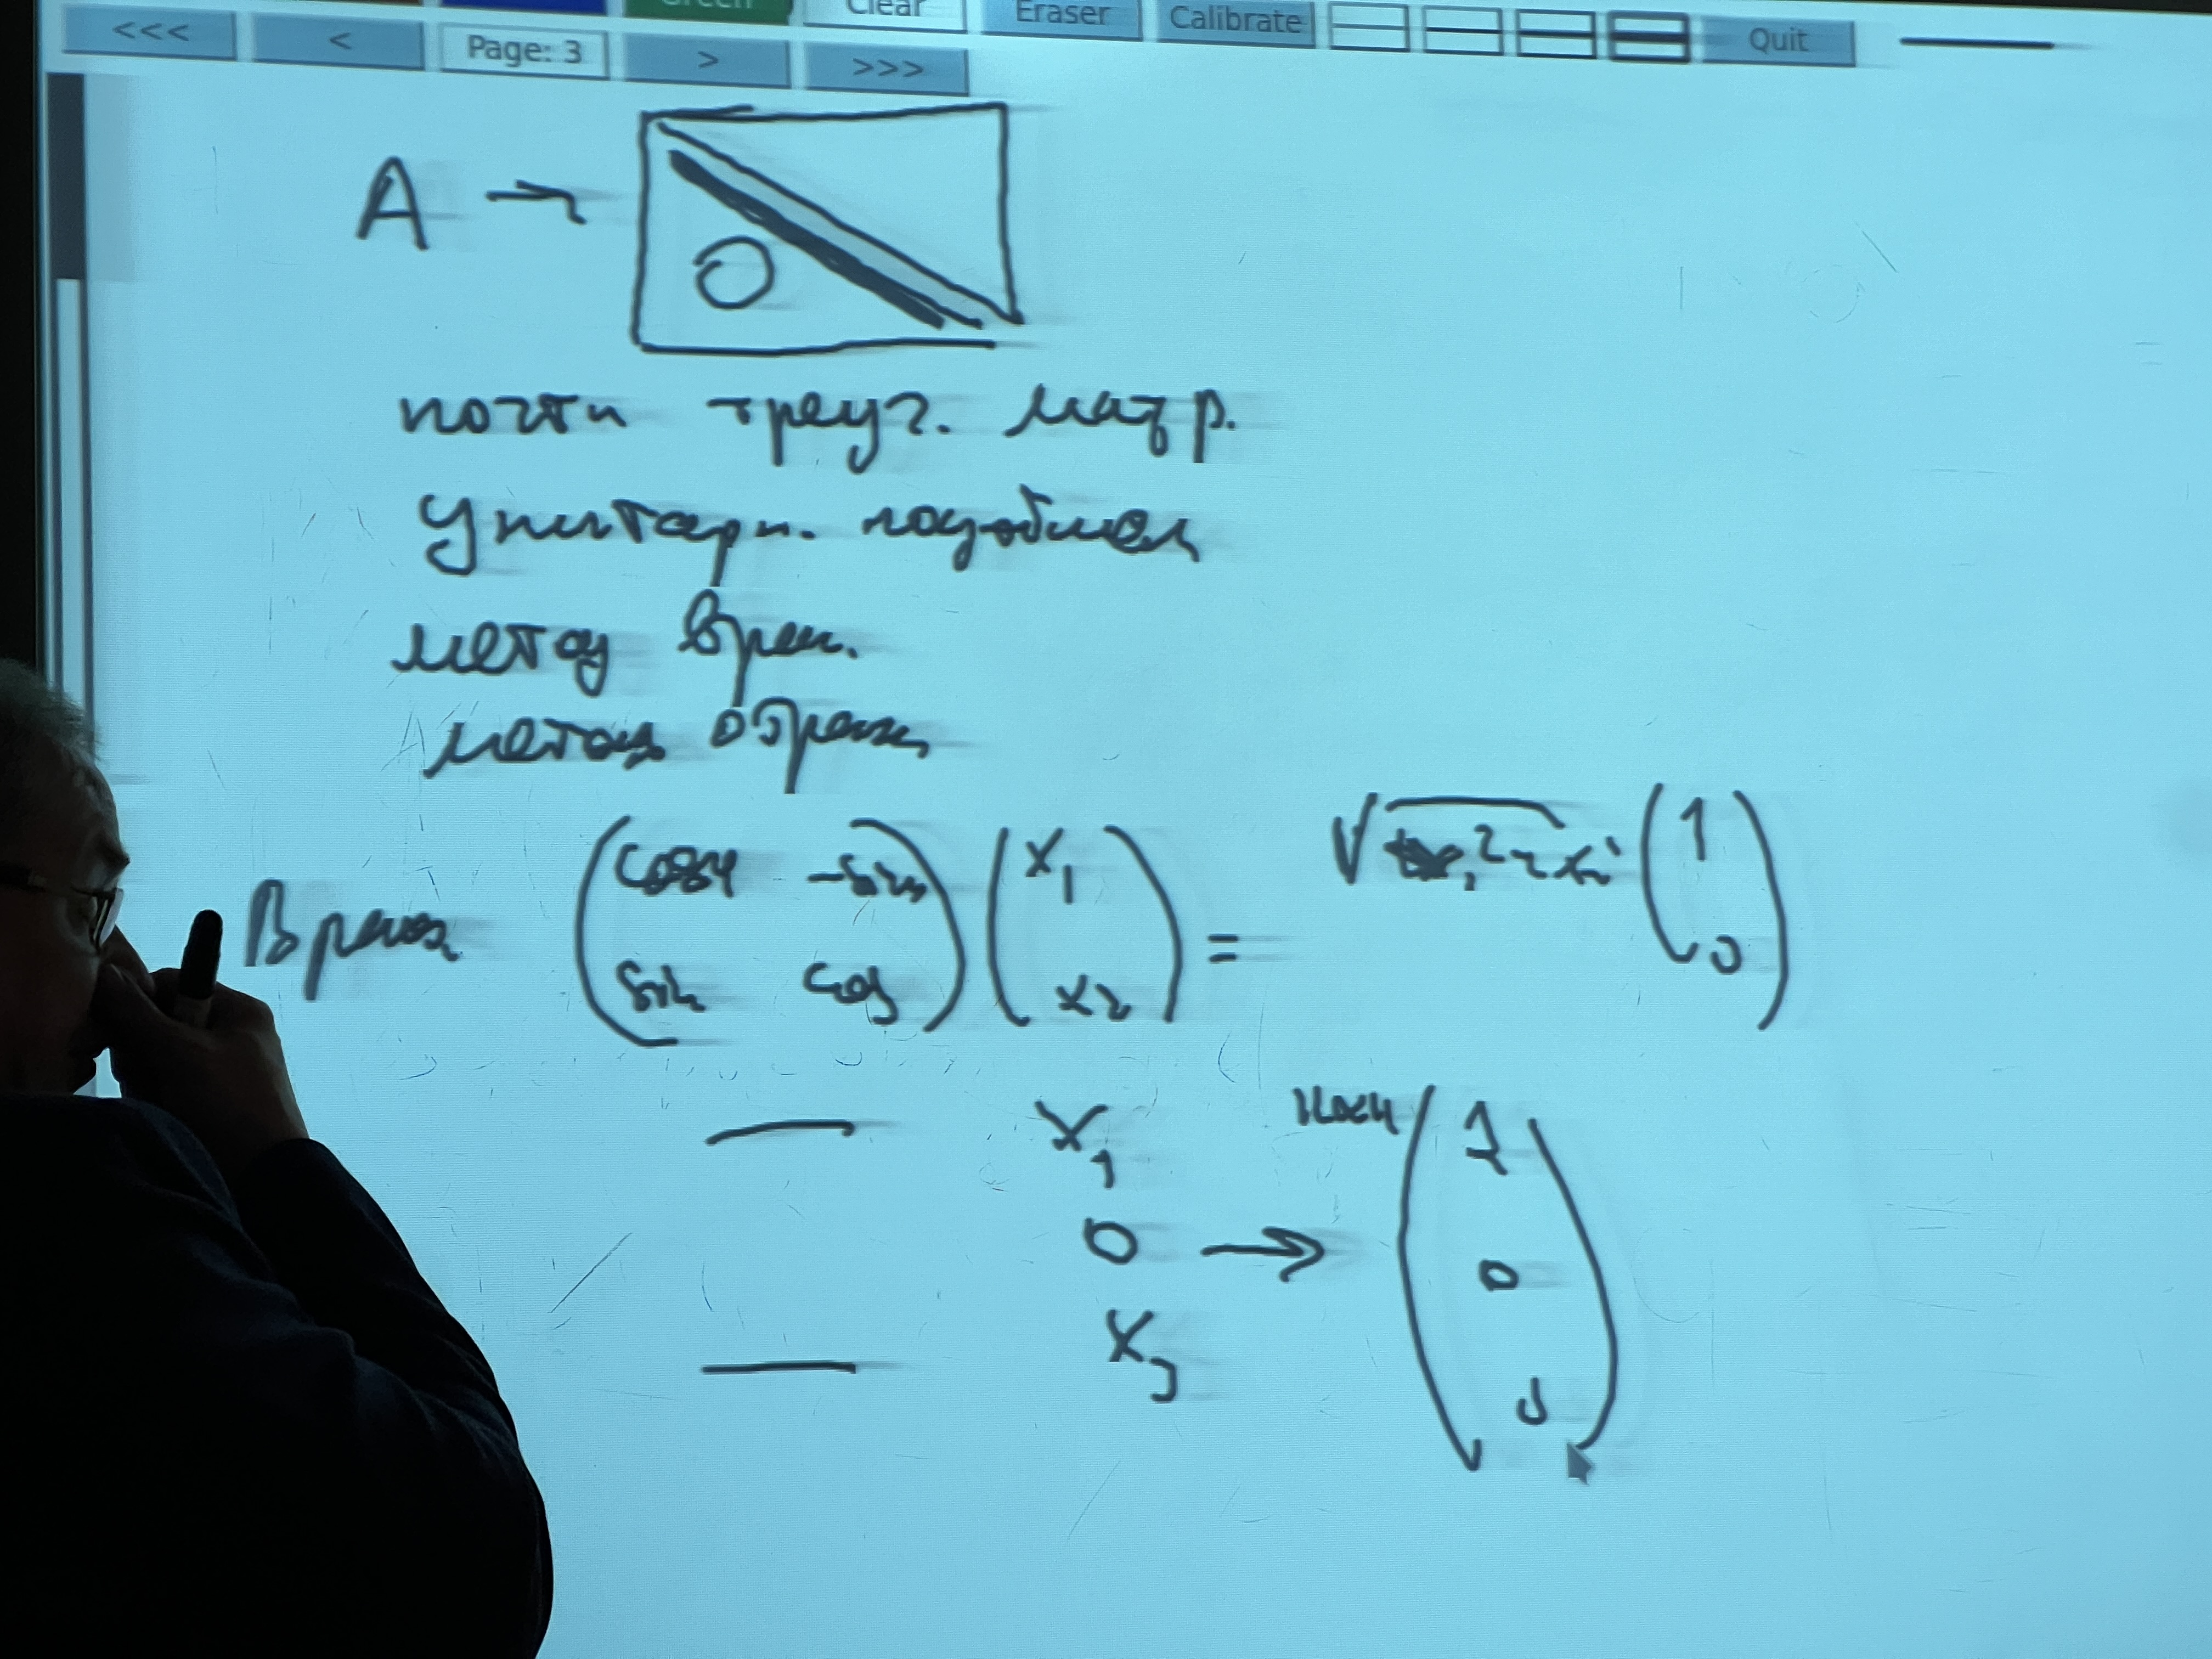 Green Clear Eraser Calibrate Quit
<<< < Page: 3 > >>>
A →
0
почти треуг. матр.
Унитарн. подобием
метод вращ.
метод отраж
Вращ
( cosφ -sin ) ( x₁ ) = √ x₁² + x₂² ( 1 )
( sin cos ) ( x₂ ) ( 0 )
— x₁ ( 1 )
0 → ( 0 )
— x₃ ( 0 )